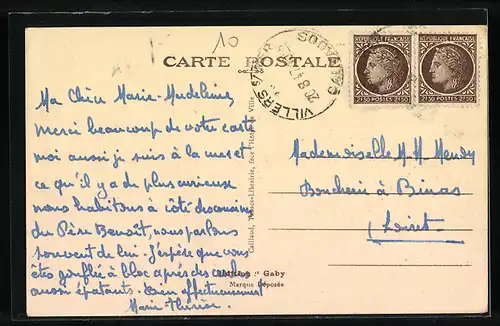 10
CARTE POSTALE
VILLERS S/MER
CALVADOS
20-8
REPUBLIQUE FRANÇAISE
2F50 POSTES 2F50
REPUBLIQUE FRANÇAISE
2F50 POSTES 2F50
Ma Chère Marie-Madeleine,
Merci beaucoup de votre carte
moi aussi je suis à la mer et
ce qu'il y a de plus curieux
nous habitons à côté de cousins
du Père Benoît, nous parlons
souvent de lui. J'espère que vous
êtes gonflée à bloc après des
aussi épatants. Bien affectueusement
Marie Thérèse.
Mademoiselle M. M. Mendy
Boucherie à Binas
Loiret
Caillaud, Librairie, face
Gaby
Marque Déposée